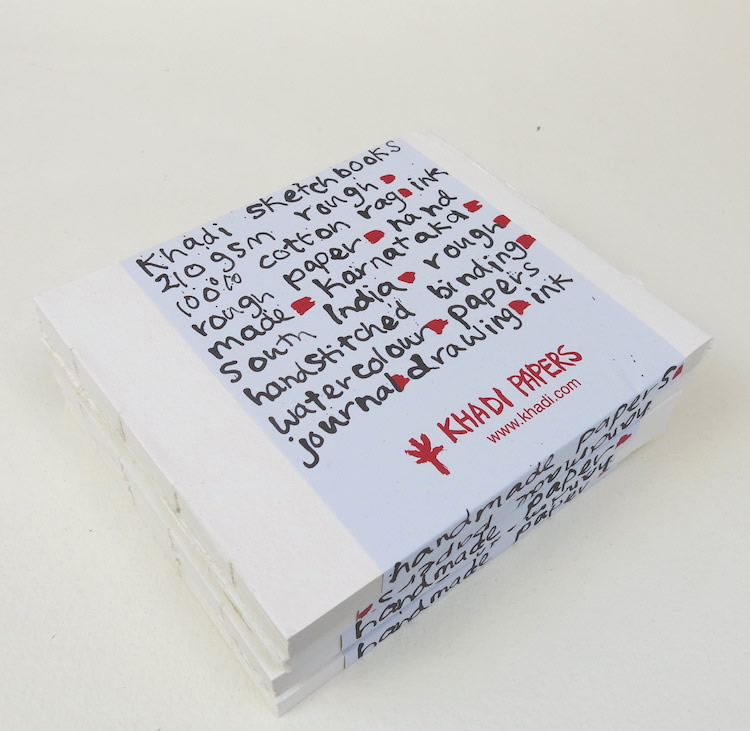 Khadi sketchbooks
210gsm rough
100% cotton rag ink
rough paper hand
made Karnataka
South India rough
handstitched binding
watercolour papers
journal drawing ink
KHADI PAPERS
www.khadi.com
handmade papers
handmade paper
handmade paper